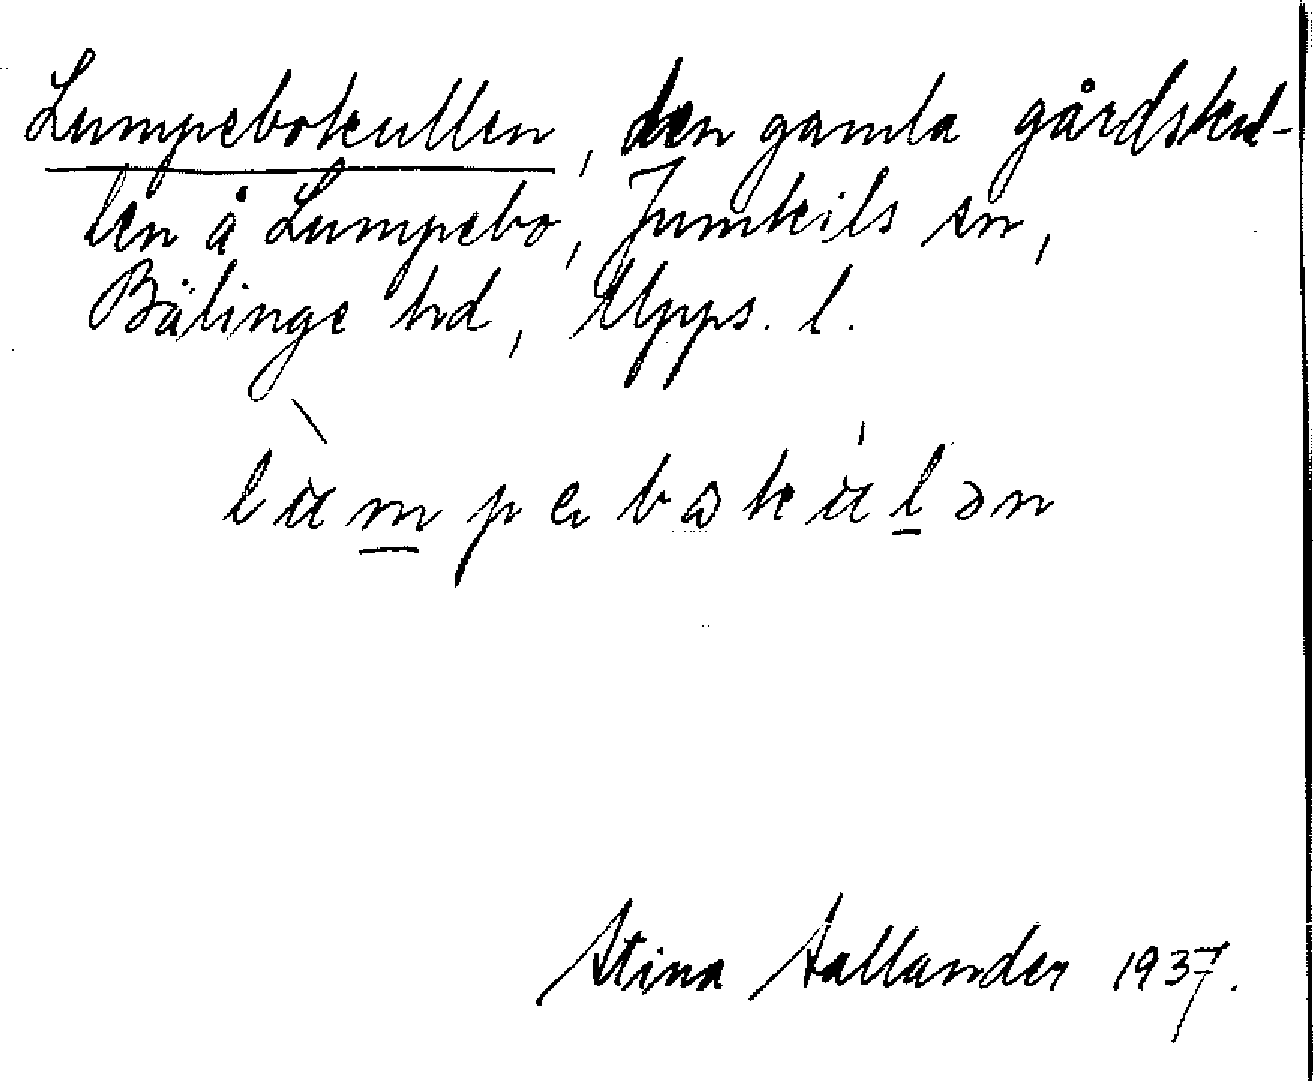 Lumpebokullen, den gamla gårdskul-
len å Lumpebo, Jumkils sn,
Bälinge hd, Upps. l.
Stina Sallander 1937.